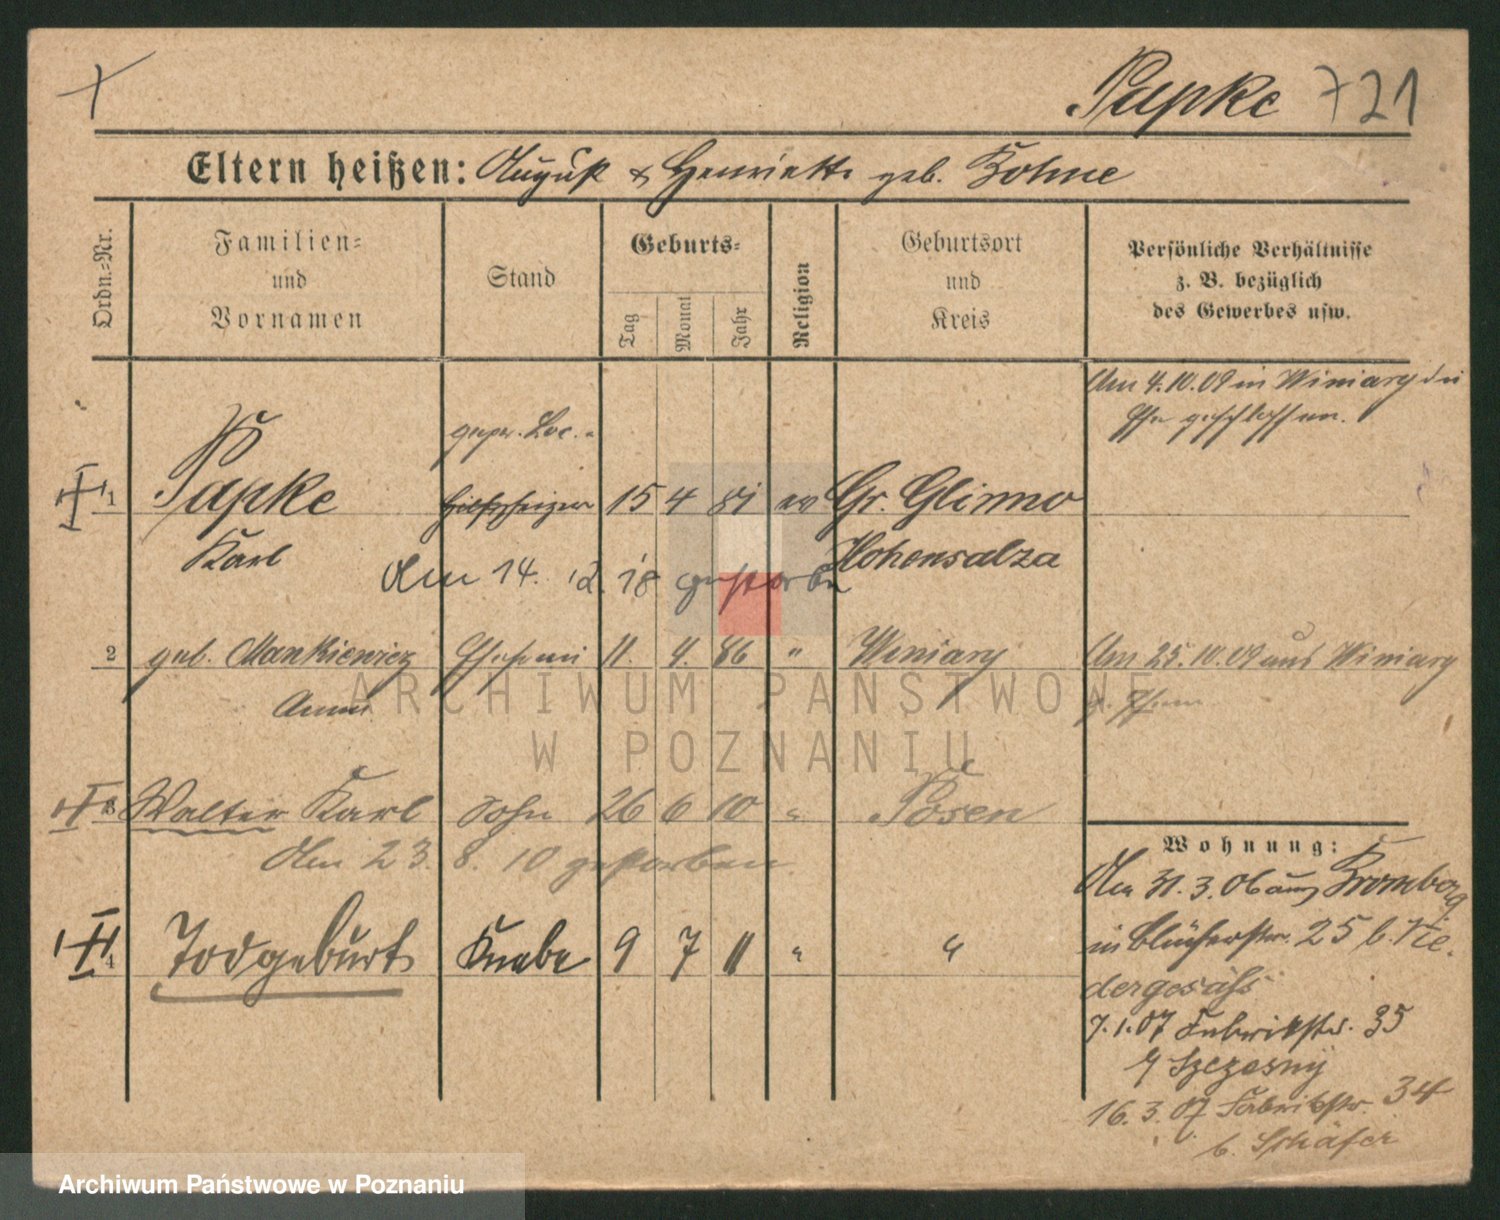 Papke 721
Eltern heißen: August & Henriette geb. Bohne
Ordn.=Nr.
Familien=
und
Vornamen
Stand
Geburts=
Tag
Monat
Jahr
Religion
Geburtsort
und
Kreis
Persönliche Verhältnisse
z. B. bezüglich
des Gewerbes usw.
Am 4.10.09 in Winiary die
Ehe geschlossen.
gepr. Loc.-
1 Papke Hilfsheizer 15 4 81 ev Gr. Glinno
Karl Hohensalza
Am 14. 12. 18 gestorben
2 geb. Mankiewicz Ehefrau 11. 4. 86 " Winiary Am 25.10.09 aus Winiary
Anna z. Ehem.
3 Walter Karl Sohn 26 6 10 " Posen
Am 23. 8. 10 gestorben
4 Todgeburt Knabe 9 7 11 " "
Wohnung:
Am 31.3.06 aus Bromberg
in Blücherstr. 25 b. Nie-
dergesäss
7.1.07 Fabrikstr. 35
b Szczesny
16.3.07 Fabrikstr. 34
b. Schäfer
ARCHIWUM PAŃSTWOWE
W POZNANIU
Archiwum Państwowe w Poznaniu